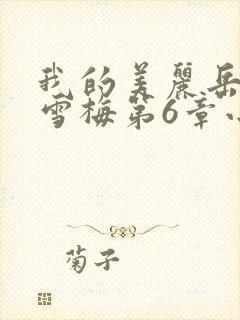 我的美麗岳
雪梅第6章
菊子